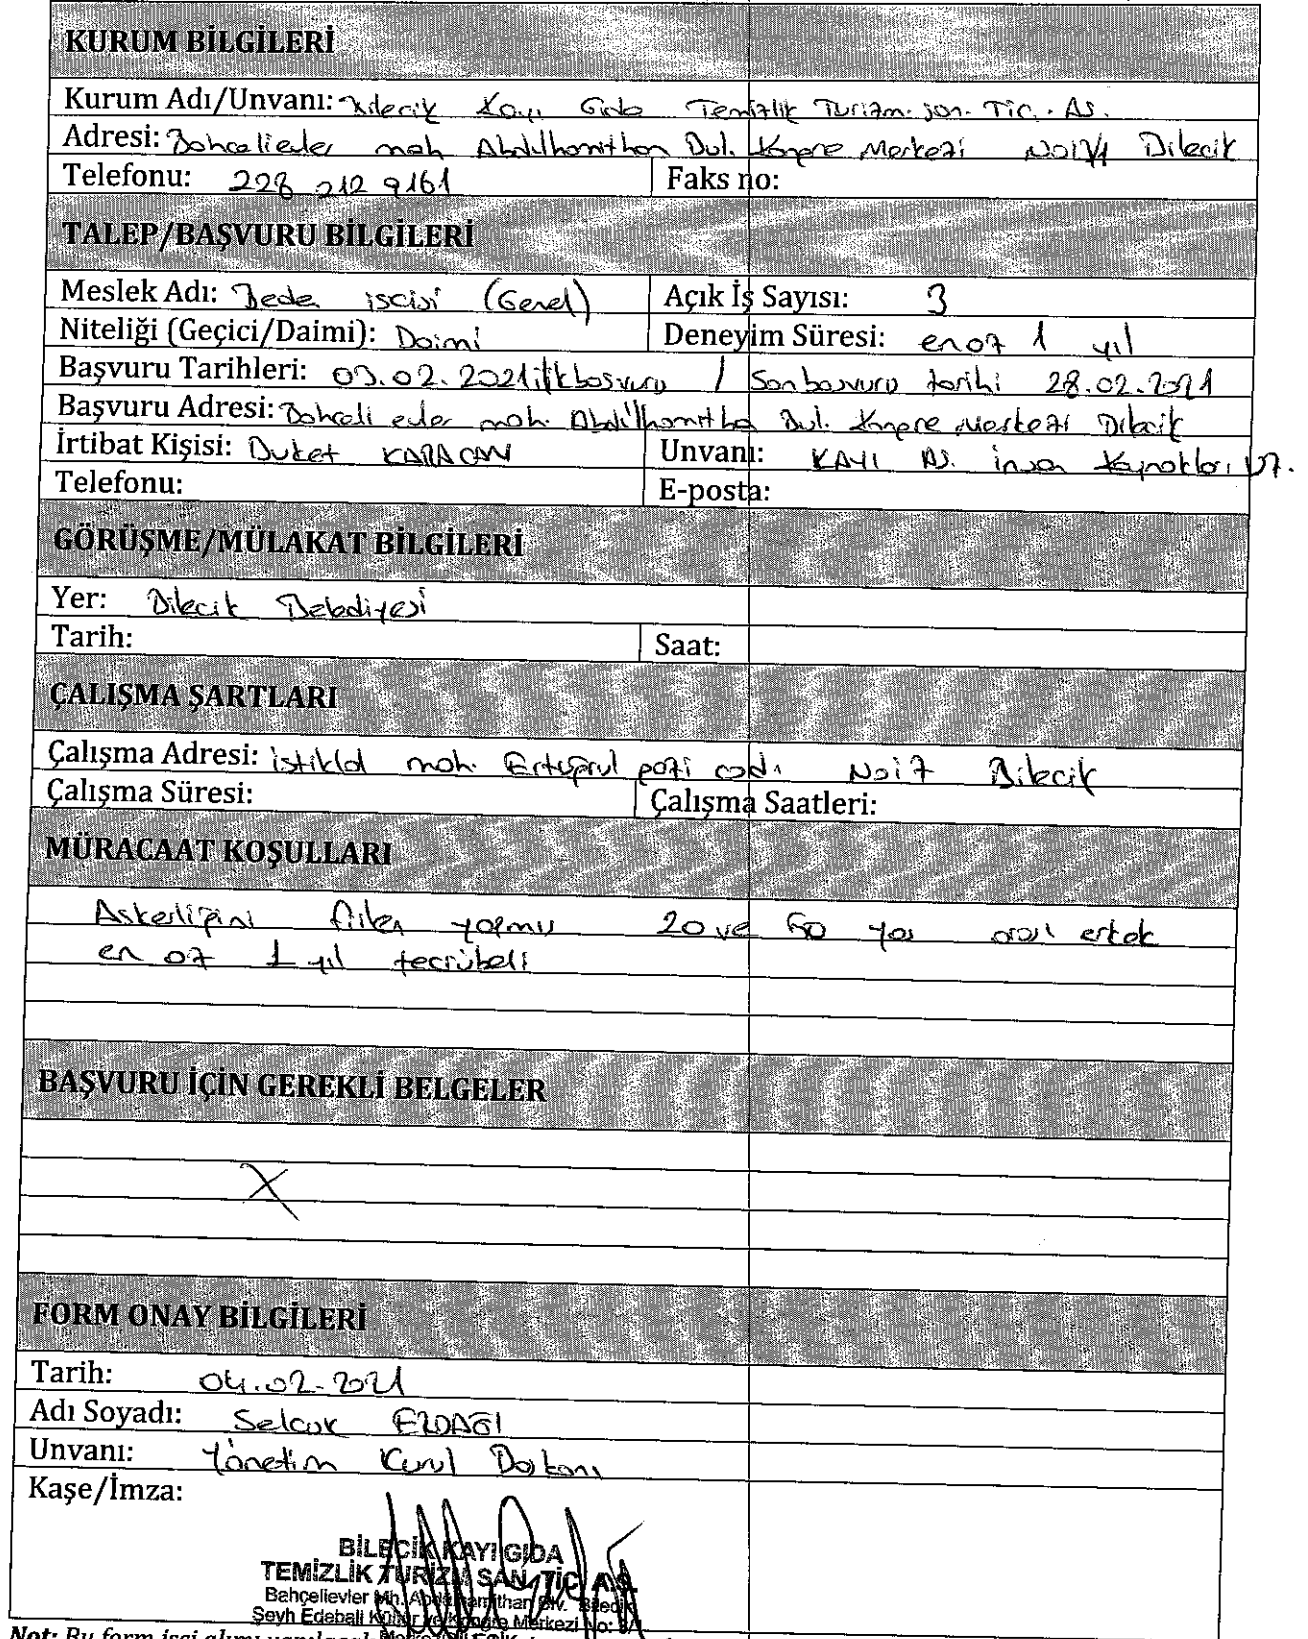 KURUM BİLGİLERİ
Kurum Adı/Unvanı: Bilecik Kayı Gıda Temizlik Turizm. San. Tic. AŞ.
Adresi: Bahçelievler mah Abdülhamithan Bul. Kongre Merkezi Bilecik
Telefonu: 228 212 9161 Faks no:
TALEP/BAŞVURU BİLGİLERİ
Meslek Adı: Beden işçisi (Genel) Açık İş Sayısı: 3
Niteliği (Geçici/Daimi): Daimi Deneyim Süresi: en az 1 yıl
Başvuru Tarihleri: 02.2021 ilk başvuru / Son başvuru tarihi 28.02.2021
Başvuru Adresi: Bahçeli evler mah. Abdülhamitha Bul. Kongre Merkezi Bilecik
İrtibat Kişisi: Buket KARACAN Unvanı: KAYI AŞ. İnsan Kaynakları Uz.
Telefonu: E-posta:
GÖRÜŞME/MÜLAKAT BİLGİLERİ
Yer: Bilecik Belediyesi
Tarih: Saat:
ÇALIŞMA ŞARTLARI
Çalışma Adresi: istiklal mah. Ertuğrul gazi cad. No:7 Bilecik
Çalışma Süresi: Çalışma Saatleri:
MÜRACAAT KOŞULLARI
Askerliğini fiilen yapmış 20 ve yaş arası erkek
en az 1 yıl tecrübeli
BAŞVURU İÇİN GEREKLİ BELGELER
X
FORM ONAY BİLGİLERİ
Tarih: 04.02.2021
Adı Soyadı: Selçuk ERDAĞI
Unvanı: Yönetim Kurul Başkanı
Kaşe/İmza:
BİLECİK KAYI GIDA
TEMİZLİK TURİZM SAN. TİC. A.Ş.
Bahçelievler Mh. Abdülhamithan Blv. Bilecik
Şeyh Edebali Kültür ve Kongre Merkezi No:
Not: Bu form işçi alımı